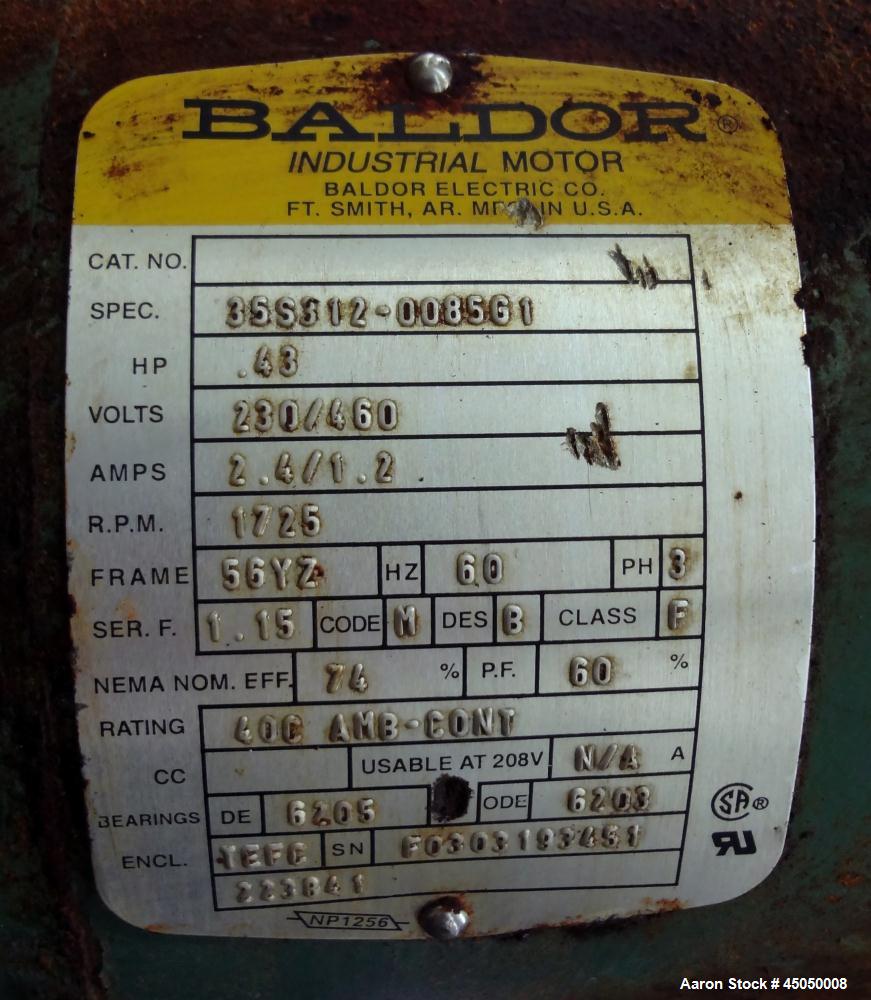 BALDOR®
INDUSTRIAL MOTOR
BALDOR ELECTRIC CO.
FT. SMITH, AR. MFG IN U.S.A.
CAT. NO.
SPEC. 35S312-0085G1
HP .43
VOLTS 230/460
AMPS 2.4/1.2
R.P.M. 1725
FRAME 56YZ HZ 60 PH 3
SER. F. 1.15 CODE M DES B CLASS F
NEMA NOM. EFF. 74 % P.F. 60 %
RATING 40C AMB-CONT
CC USABLE AT 208V N/A A
BEARINGS DE 6205 ODE 6203
ENCL. TEFC SN F0303193451
223841
NP1256
SA®
RU
Aaron Stock # 45050008